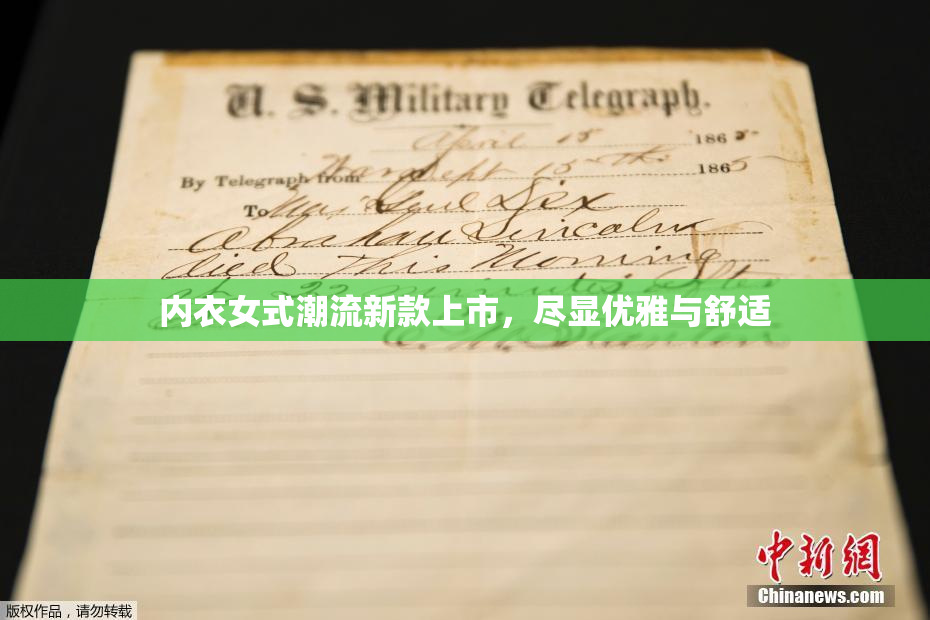 U. S. Military Telegraph.
April 15 1865
By Telegraph from War Dept 15th 1865
To Maj Genl Dix
Abraham Lincoln
died This Morning
at 22 minutes after
内衣女式潮流新款上市，尽显优雅与舒适
E. M. Stanton
中新网
Chinanews.com
版权作品，请勿转载